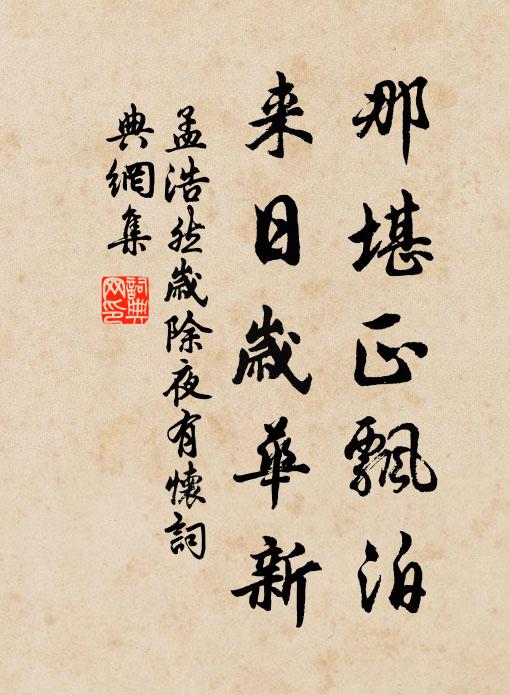 那堪正飄泊
来日歲華新
孟浩然歲除夜有懷詞
典網集
詞典
网印